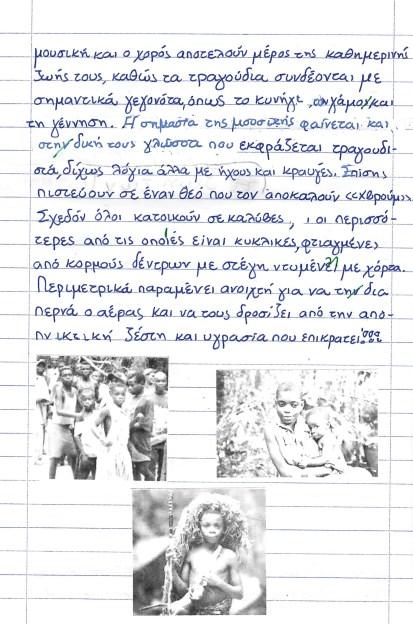 μουσική και ο χορός αποτελούν μέρος της καθημερινής
ζωής τους, καθώς τα τραγούδια συνδέονται με
σημαντικά γεγονότα, όπως το κυνήγι, οι γάμοι και
τη γέννηση. Η σημασία της μουσικής φαίνεται και
στην δική τους γλώσσα που εκφράζεται τραγουδι-
στά, δίχως λόγια άλλα με ήχους και κραυγές. Επίσης
πιστεύουν σε έναν θεό που τον αποκαλούν <<χθρούμ>>.
Σχεδόν όλοι κατοικούν σε καλύβες, οι περισσό-
τερες από τις οποίες είναι κυκλικές, φτιαγμένες
από κορμούς δέντρων με στέγη ντυμένη με χόρτα.
Περιμετρικά παραμένει ανοιχτή για να την δια
περνά ο αέρας και να τους δροσίζει από την απο-
πνικτική ζέστη και υγρασία που επικρατεί!